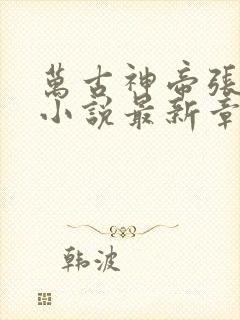 萬古神帝張
小說最新章
韩波